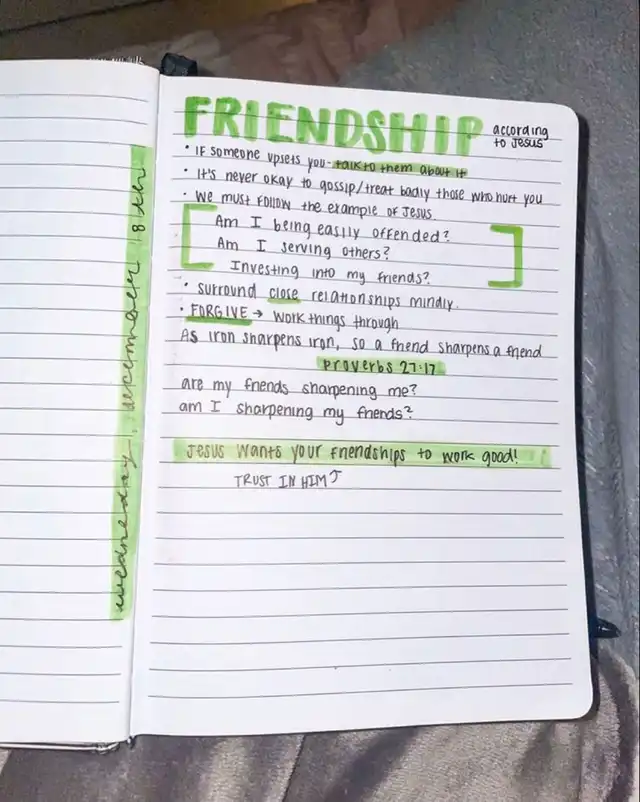 wednesday, december 8th
FRIENDSHIP according to Jesus
• IF someone upsets you - talk to them about it
• It's never okay to gossip/treat badly those who hurt you
• We must FOLLOW the example OF JESUS.
Am I being easily offended?
Am I serving others?
Investing into my friends?
• surround close relationships mindly.
• FORGIVE → work things through
As iron sharpens iron, so a friend sharpens a friend
Proverbs 27:17
are my friends sharpening me?
am I sharpening my friends?
Jesus wants your friendships to work good!
TRUST IN HIM